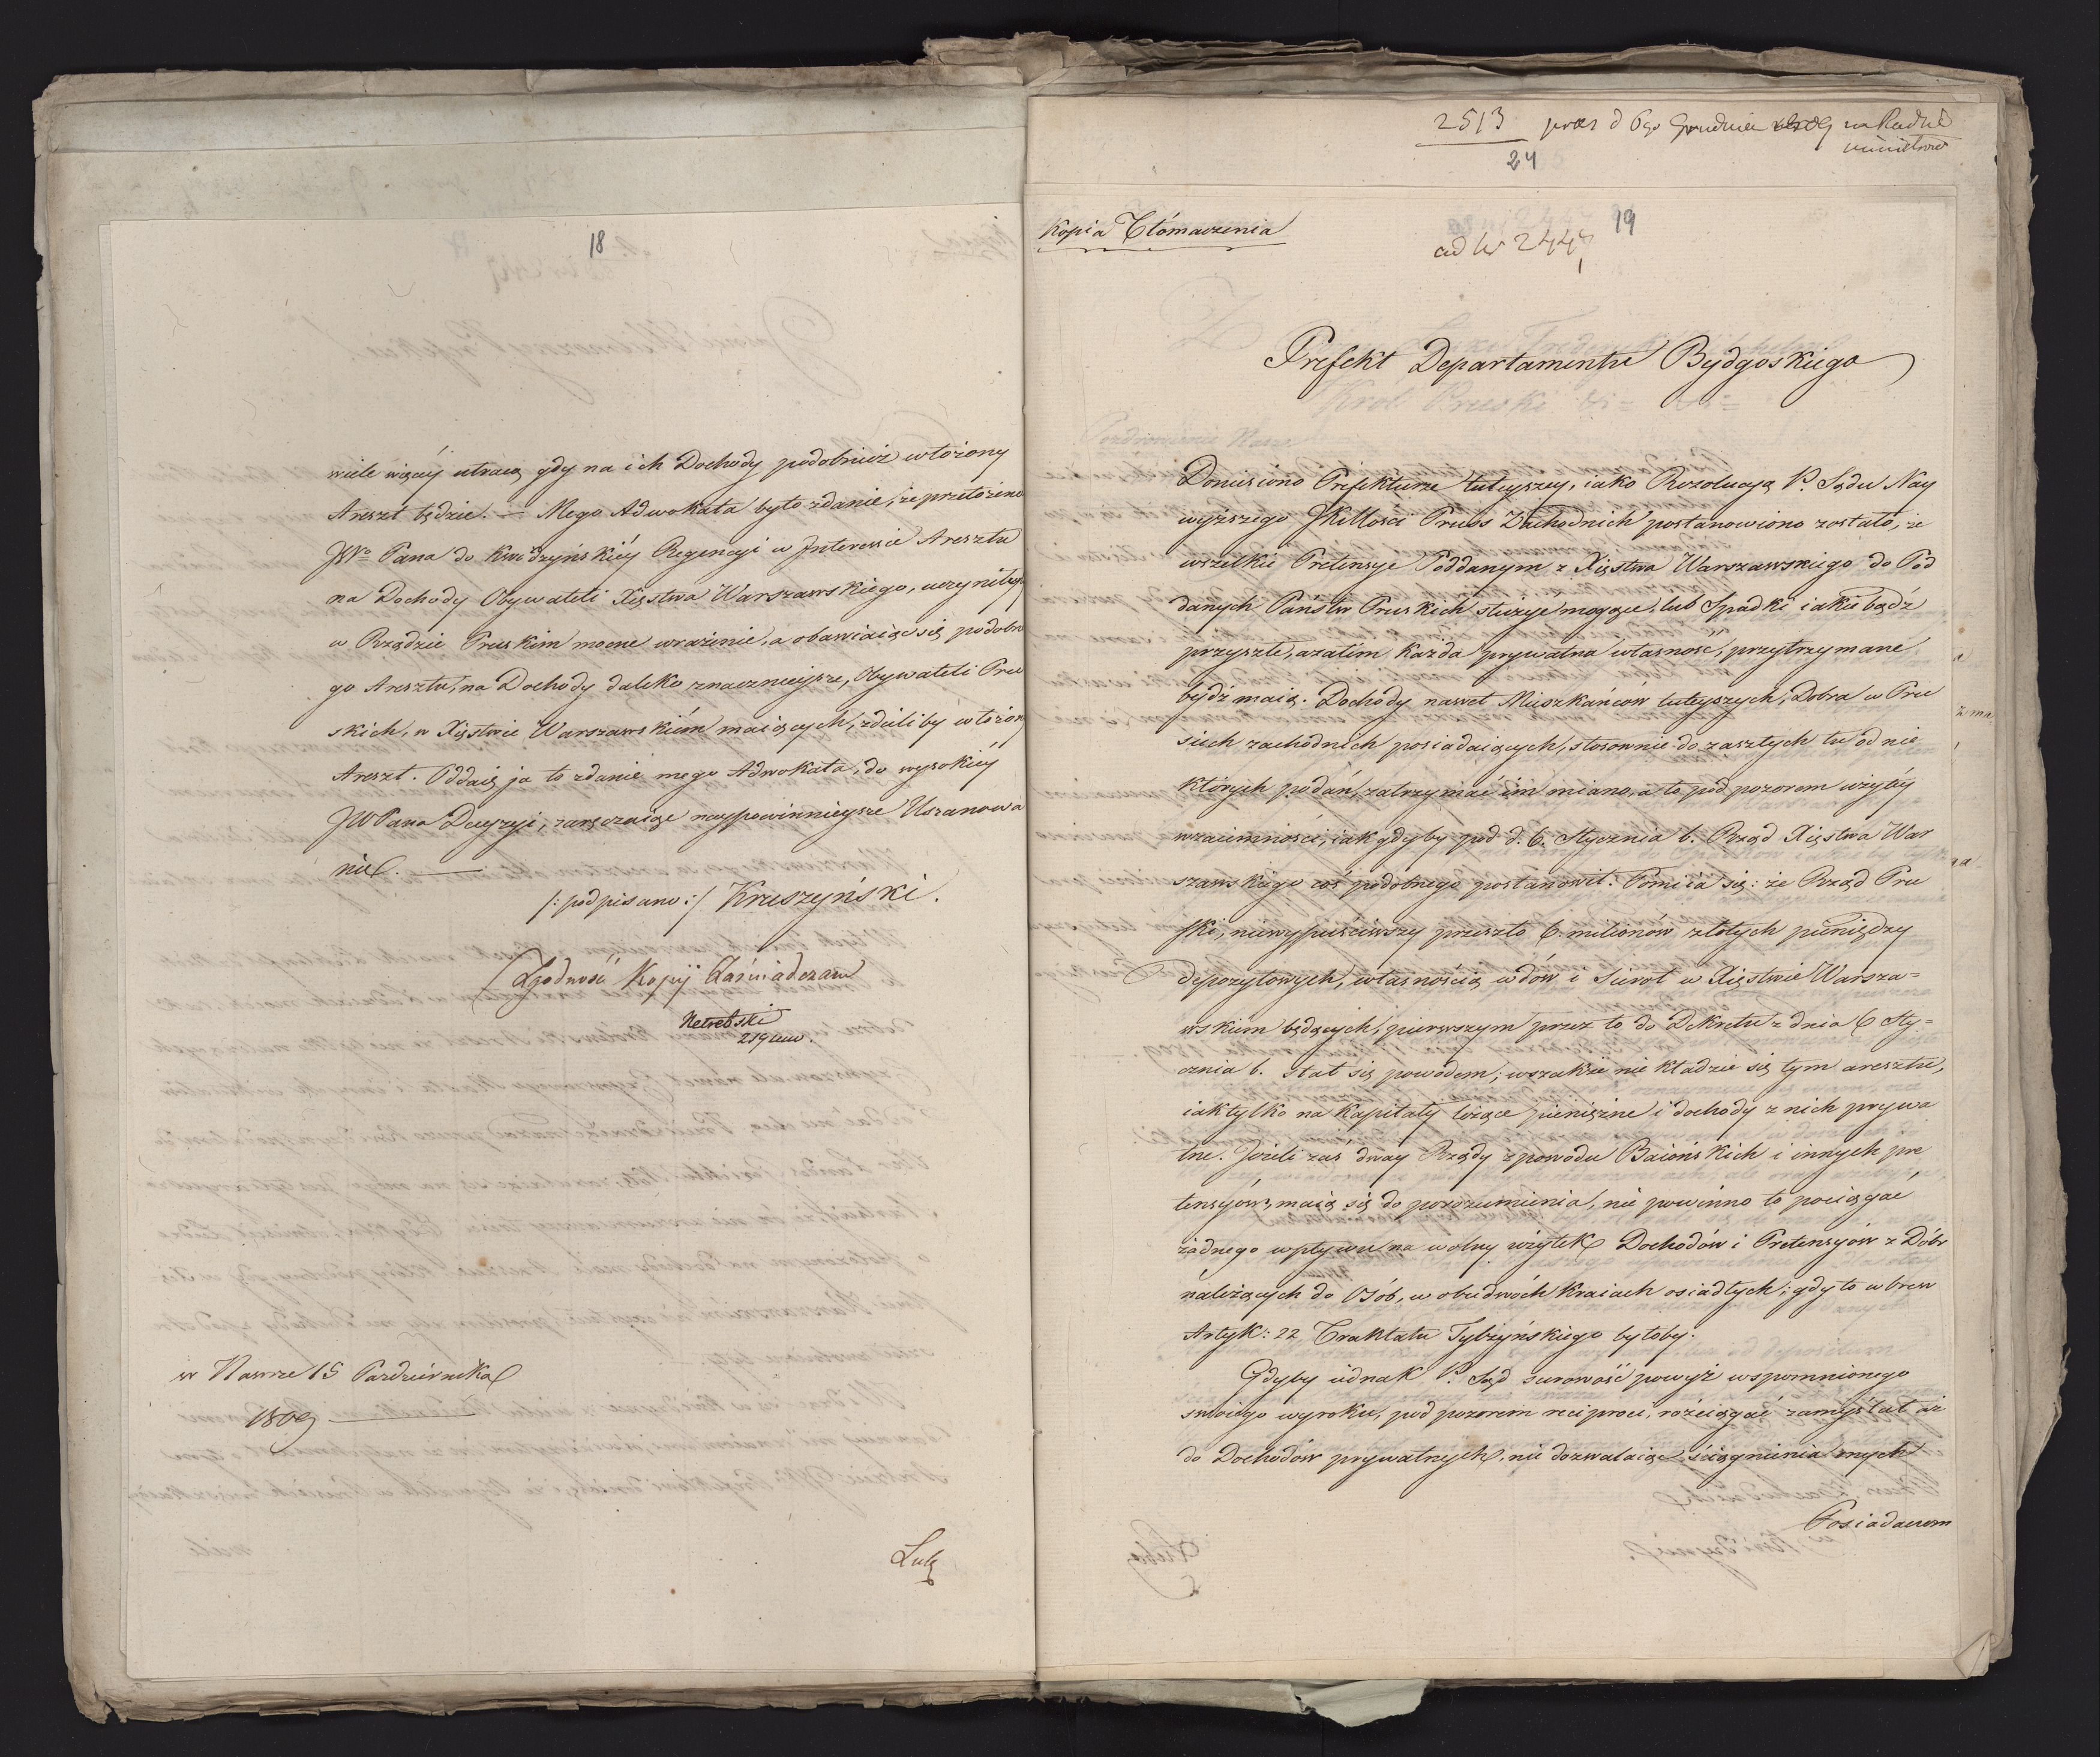 18
wiele więcéy utracą gdy na ich Dochody podobnież włożony
Areszt będzie. — Mego Adwokata było zdanie, że przełożenie
JWo Pana do Kwidzyńskiéy Regencyi w Interessie Aresztu
na Dochody Obywateli Xięstwa Warszawskiego, uczyniłoby
w Rządzie Pruskim mocne wrażenie, a obawiaiąc się podobne
go Aresztu, na Dochody daleko znacznieysze, Obywateli Pru
skich, w Xięstwie Warszawskiém maiących, zdieliby włożony
Areszt. Oddaię ja to zdanie mego Adwokata, do wysokiéy
JWPana Decyzyi, zaręczaiąc naypowinnieysze Uszanowa
nie. —
/: podpisano :/ Kruszyński.
Zgodność Kopij Zaświadczam
w Nawrze 15 Pazdziernika
1809
Lulg
2513 prez d 6go Grudnia 1809 na Radzie
24 ministrów
19
Kopia Tłómaczenia
ad Nr 2447
Prefekt Departamentu Bydgoskiego
Doniesiono Prefekturze tuteyszey, iako Rezolucyą P. Sądu Nay
wyższego JKMosci Pruss Zachodnich postanowiono zostało, że
wszelkie Pretensye Poddanym z Xięstwa Warszawskiego do Pod
danych Państw Pruskich służyć mogące, lub Spadki iakie bądź
przyszłe, a zatim każda prywatna własność, przytrzymane
bydz maią. Dochody nawet Mieszkańców tuteyszych, Dobra w Pru
siech zachodnich posiadaiących, stosownie do zaszłych tu od nie
których podań, zatrzymać im miano, a to pod pozorem użytéy
wzaiemności, iak gdyby pod d. 6. Stycznia b. Rząd Xięstwa War
szawskiego coś podobnego postanowił. Pomiia się: że Rząd Pru
ski, niewypuściwszy przeszło 6. milionów złotych pieniędzy
depozytowych, własnością wdów i Sierot w Xięstwie Warsza=
wskiem będących, pierwszym przez to do Dekretu z dnia 6 Sty=
cznia b. stał się powodem; wszakże nie kładzie się tym aresztu,
iak tylko na Kapitały leżące pieniężne i dochody z nich prywa
tne. Jeżeli zaś dway Rządy z powodu Baiońskich i innych pre
tensyów, maią się do porozumienia, nie powinno to pociągać
żadnego wpływu na wolny użytek Dochodów i Pretensyów z Dóbr
należących do Osób, w obudwóch Kraiach osiadłych; gdy to wbrew
Artyk: 22 Traktatu Tylżyńskiego byłoby.
Gdyby iednak P. Sąd surowość powyż wspomnionego
swoiego wyroku, pod pozorem reciproci, rościągać zamyślał aż
do Dochodów prywatnych, nie dozwalaiąc sciągnienia onych
Posiadaczom